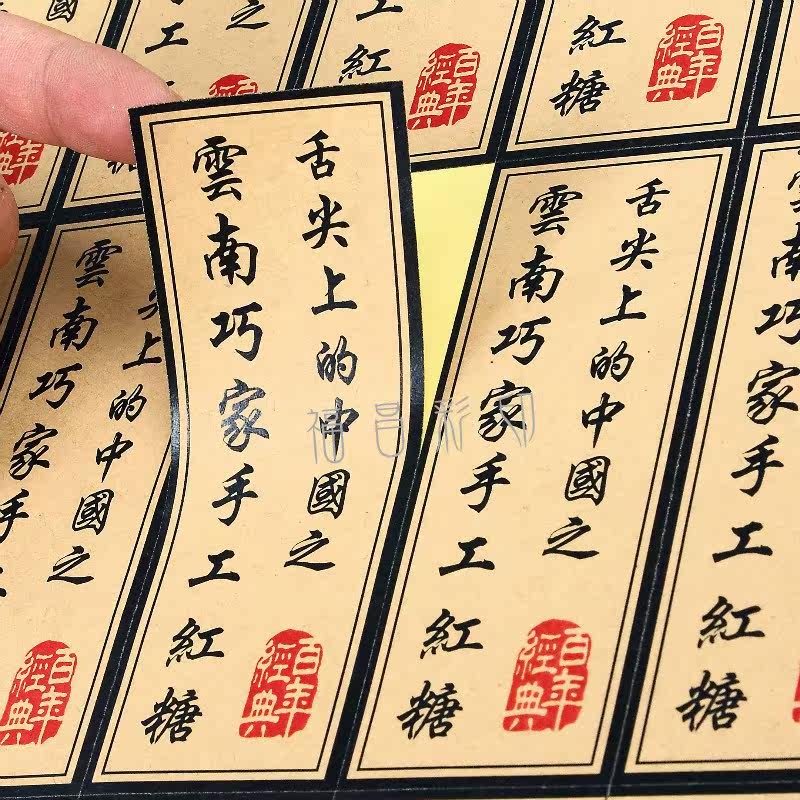 舌尖上的中國之
雲南巧家手工紅糖
百年
經典
舌尖上的中國之
雲南巧家手工紅糖
百年
經典
雲南巧家手工紅糖
上的中國之
雲南巧家手
百年
經典
工紅
百年
經典
紅糖
百年
經典
福昌彩印